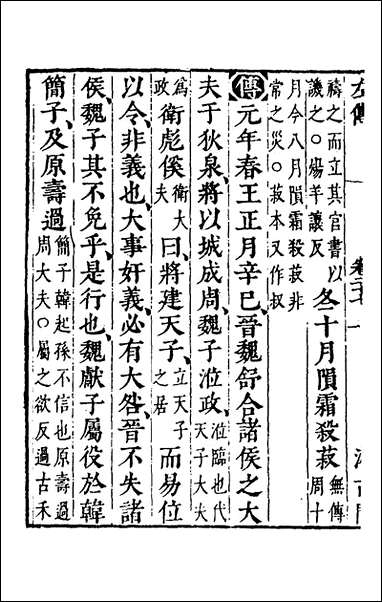 左傳 一
禱之而立其官書以譏之○煬羊讓反冬十月隕霜殺菽無傳周十
月今八月隕霜殺菽非常之災○菽本又作叔
傳元年春王正月辛巳、晉魏舒合諸侯之大
夫于狄泉、將以城成周、魏子涖政、涖臨也代天子大夫
爲政衛彪傒衛大夫曰、將建天子、立天子之居而易位
以令、非義也、大事奸義、必有大咎、晉不失諸
侯、魏子其不免乎、是行也、魏獻子屬役於韓
簡子、及原壽過簡子韓起孫不信也原壽過周大夫○屬之欲反過古禾